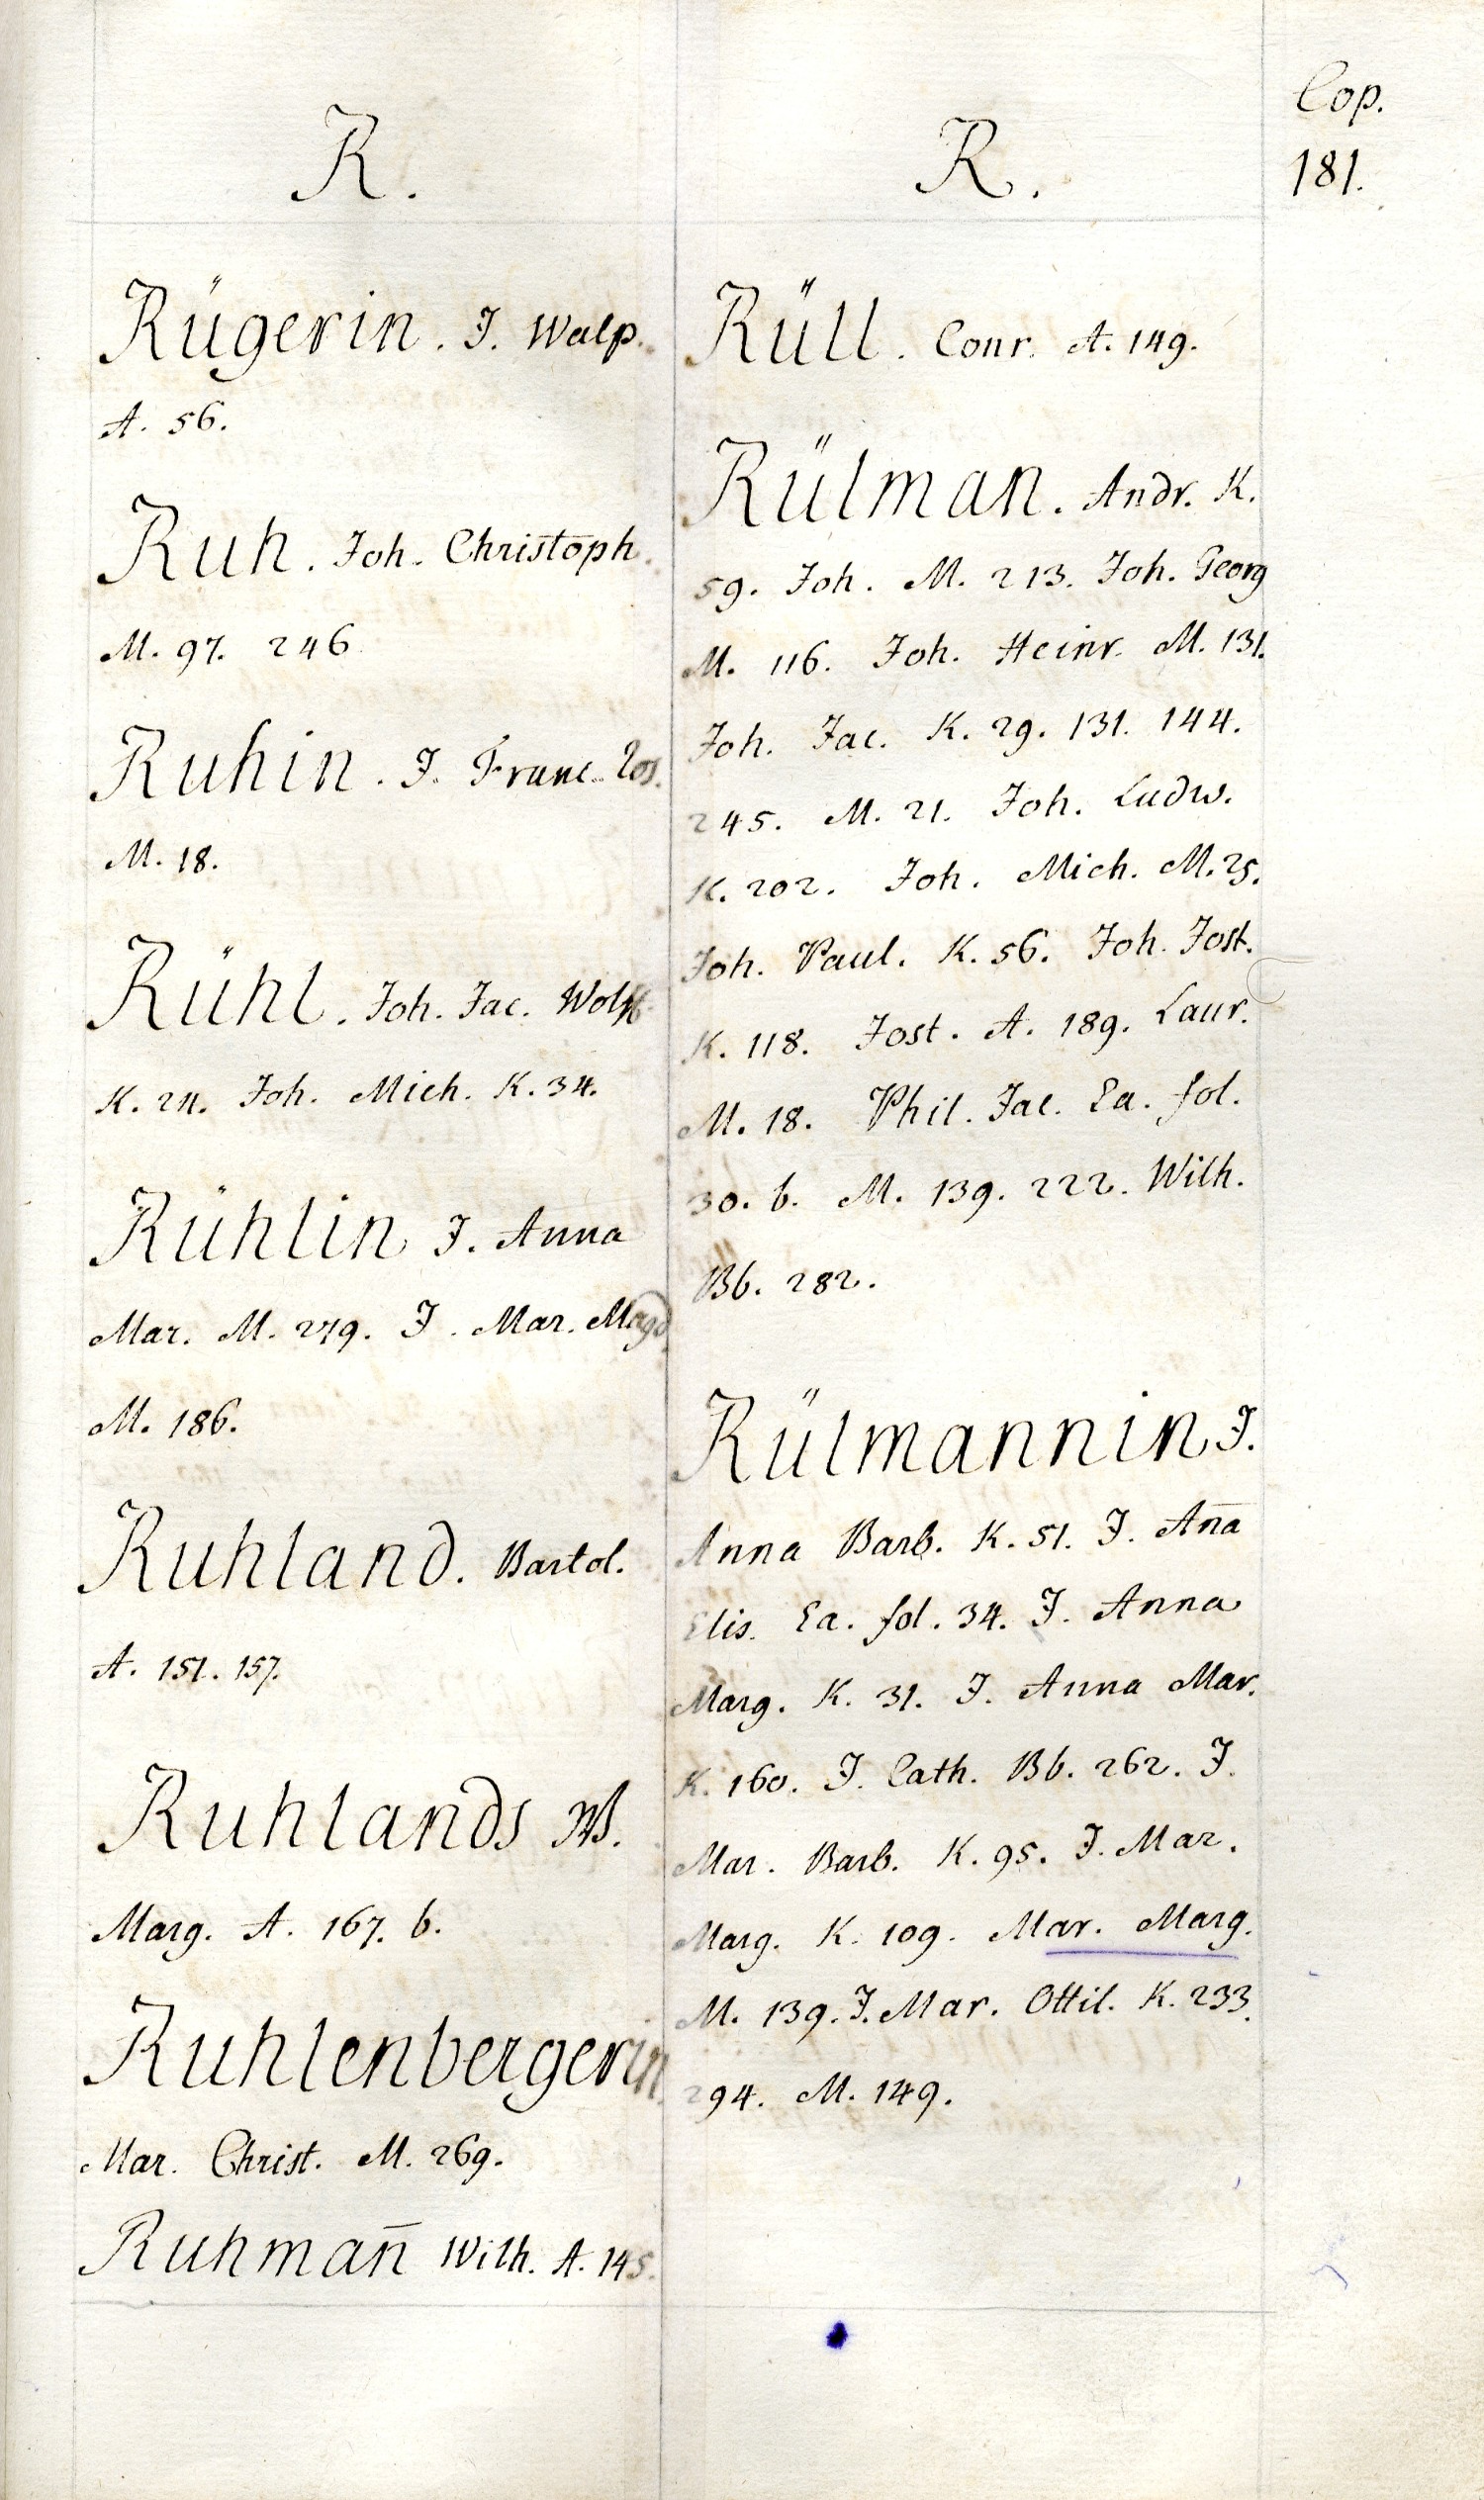 Cop.
181.
R.
Rügerin. J. Walp.
A. 56.
Ruh. Joh. Christoph.
M. 97. 246
Ruhin. J. Franc. Ros.
M. 18.
Rühl. Joh. Jac. Wolff
K. 24. Joh. Mich. K. 34.
Rühlin J. Anna
Mar. M. 279. J. Mar. Magd
M. 186.
Ruhland. Bartol.
A. 151. 157.
Ruhlands W.
Marg. A. 167. b.
Ruhlenbergerin
Mar. Christ. M. 269.
Ruhman̄ Wilh. A. 145.
R.
Rüll. Conr. A. 149.
Rülman. Andr. K.
59. Joh. M. 213. Joh. Georg
M. 116. Joh. Heinr. M. 131.
Joh. Jac. K. 29. 131. 144.
245. M. 21. Joh. Ludw.
K. 202. Joh. Mich. M. 25.
Joh. Paul. K. 56. Joh. Jost.
K. 118. Jost. A. 189. Laur.
M. 18. Phil. Jac. Ea. fol.
30. b. M. 139. 222. Wilh.
Bb. 282.
Rülmannin J.
Anna Barb. K. 51. J. An̄a
Elis. Ea. fol. 34. J. Anna
Marg. K. 31. J. Anna Mar.
K. 160. J. Cath. Bb. 262. J.
Mar. Barb. K. 95. J. Mar.
Marg. K. 109. Mar. Marg.
M. 139. J. Mar. Ottil. K. 233.
294. M. 149.